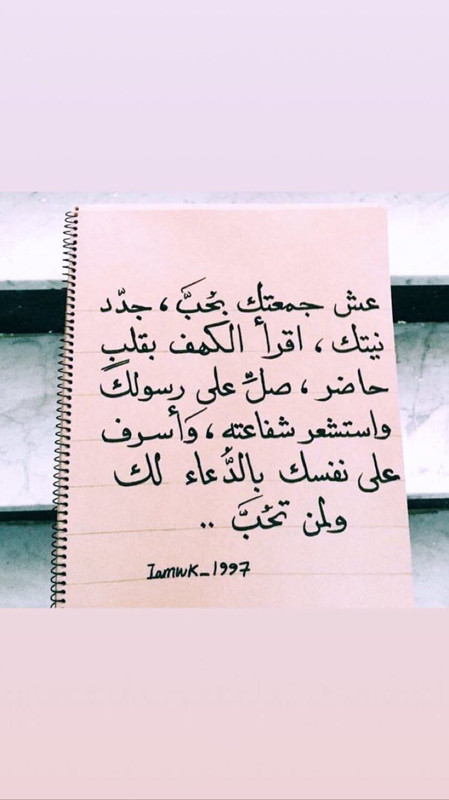 عش جمعتك بحُبَّ ، جدّد
نيتك ، اقرأ الكهف بقلبٍ
حاضر ، صلِّ على رسولك
واستشعر شفاعته ، وَأسرف
على نفسك بالدُّعاء لك
ولمن تحُبَّ ..
Iamwk_1997